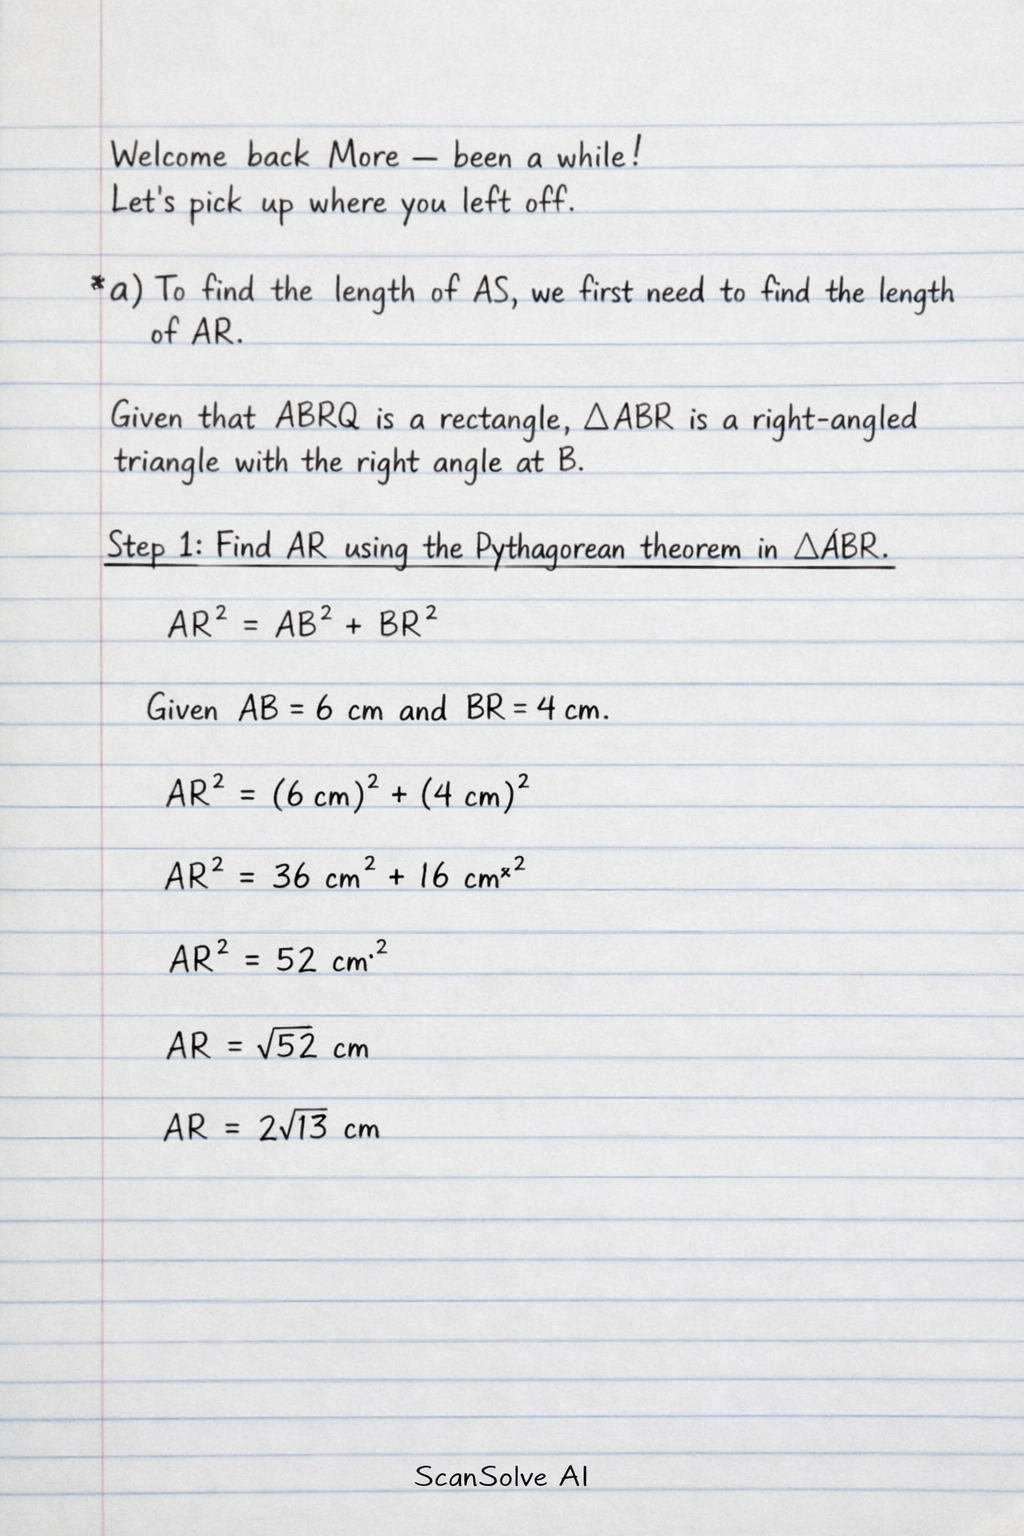 Welcome back More — been a while!
Let's pick up where you left off.
*a) To find the length of AS, we first need to find the length
of AR.
Given that ABRQ is a rectangle, △ABR is a right-angled
triangle with the right angle at B.
Step 1: Find AR using the Pythagorean theorem in △ABR.
AR² = AB² + BR²
Given AB = 6 cm and BR = 4 cm.
AR² = (6 cm)² + (4 cm)²
AR² = 36 cm² + 16 cmˣ²
AR² = 52 cm·²
AR = √52 cm
AR = 2√13 cm
ScanSolve AI